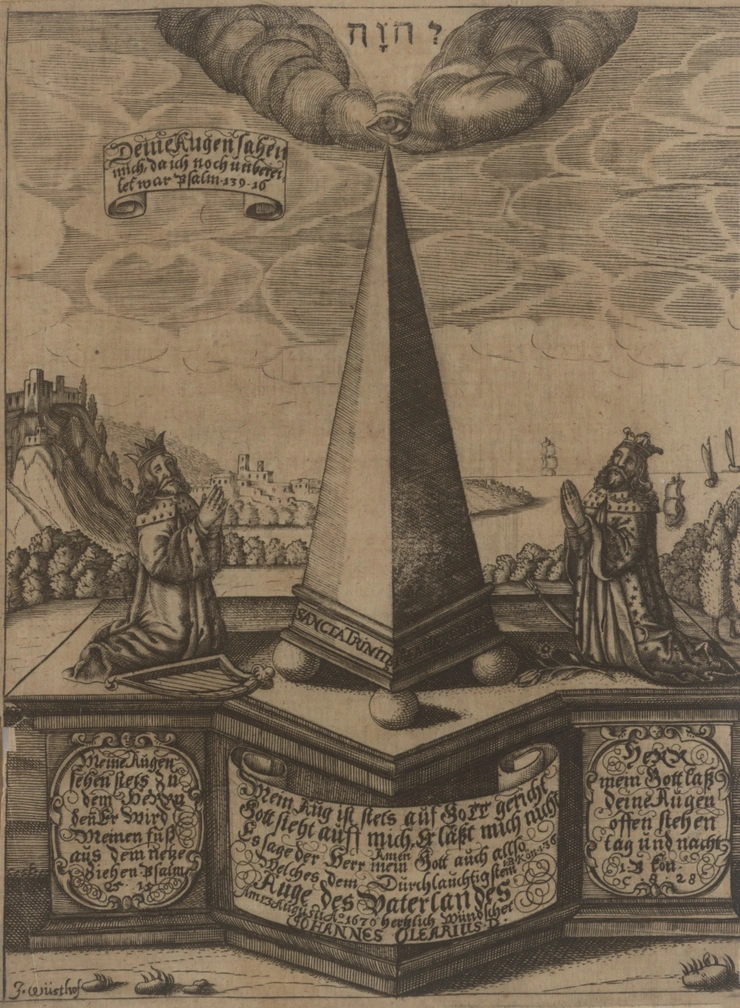 יְהוָה
Deine Augen sahen
mich, da ich noch unberei
tet war Psalm·139·16
SANCTA TRINIT
Meine Augen
sehen stets zu
dem HERRN
den Er wird
Meinen fuß
aus dem netze
ziehen Psalm
25·15
HERR
mein Gott laß
deine Augen
offen stehen
tag und nacht
1·B Kön
C·8·28
Mein Aug ist stets auf GOTT gericht
Gott sieht auff mich, Er läßt mich nicht
Amen
Es sage der Herr mein Gott auch also
1·B·Kön·1·36
Welches dem Durchlauchtigsten
Auge des Vaterlandes
Am 13 Augusti Aº 1676 hertzlich wündschet
JOHANNES OLEARIUS·D·
J. Wüsthof